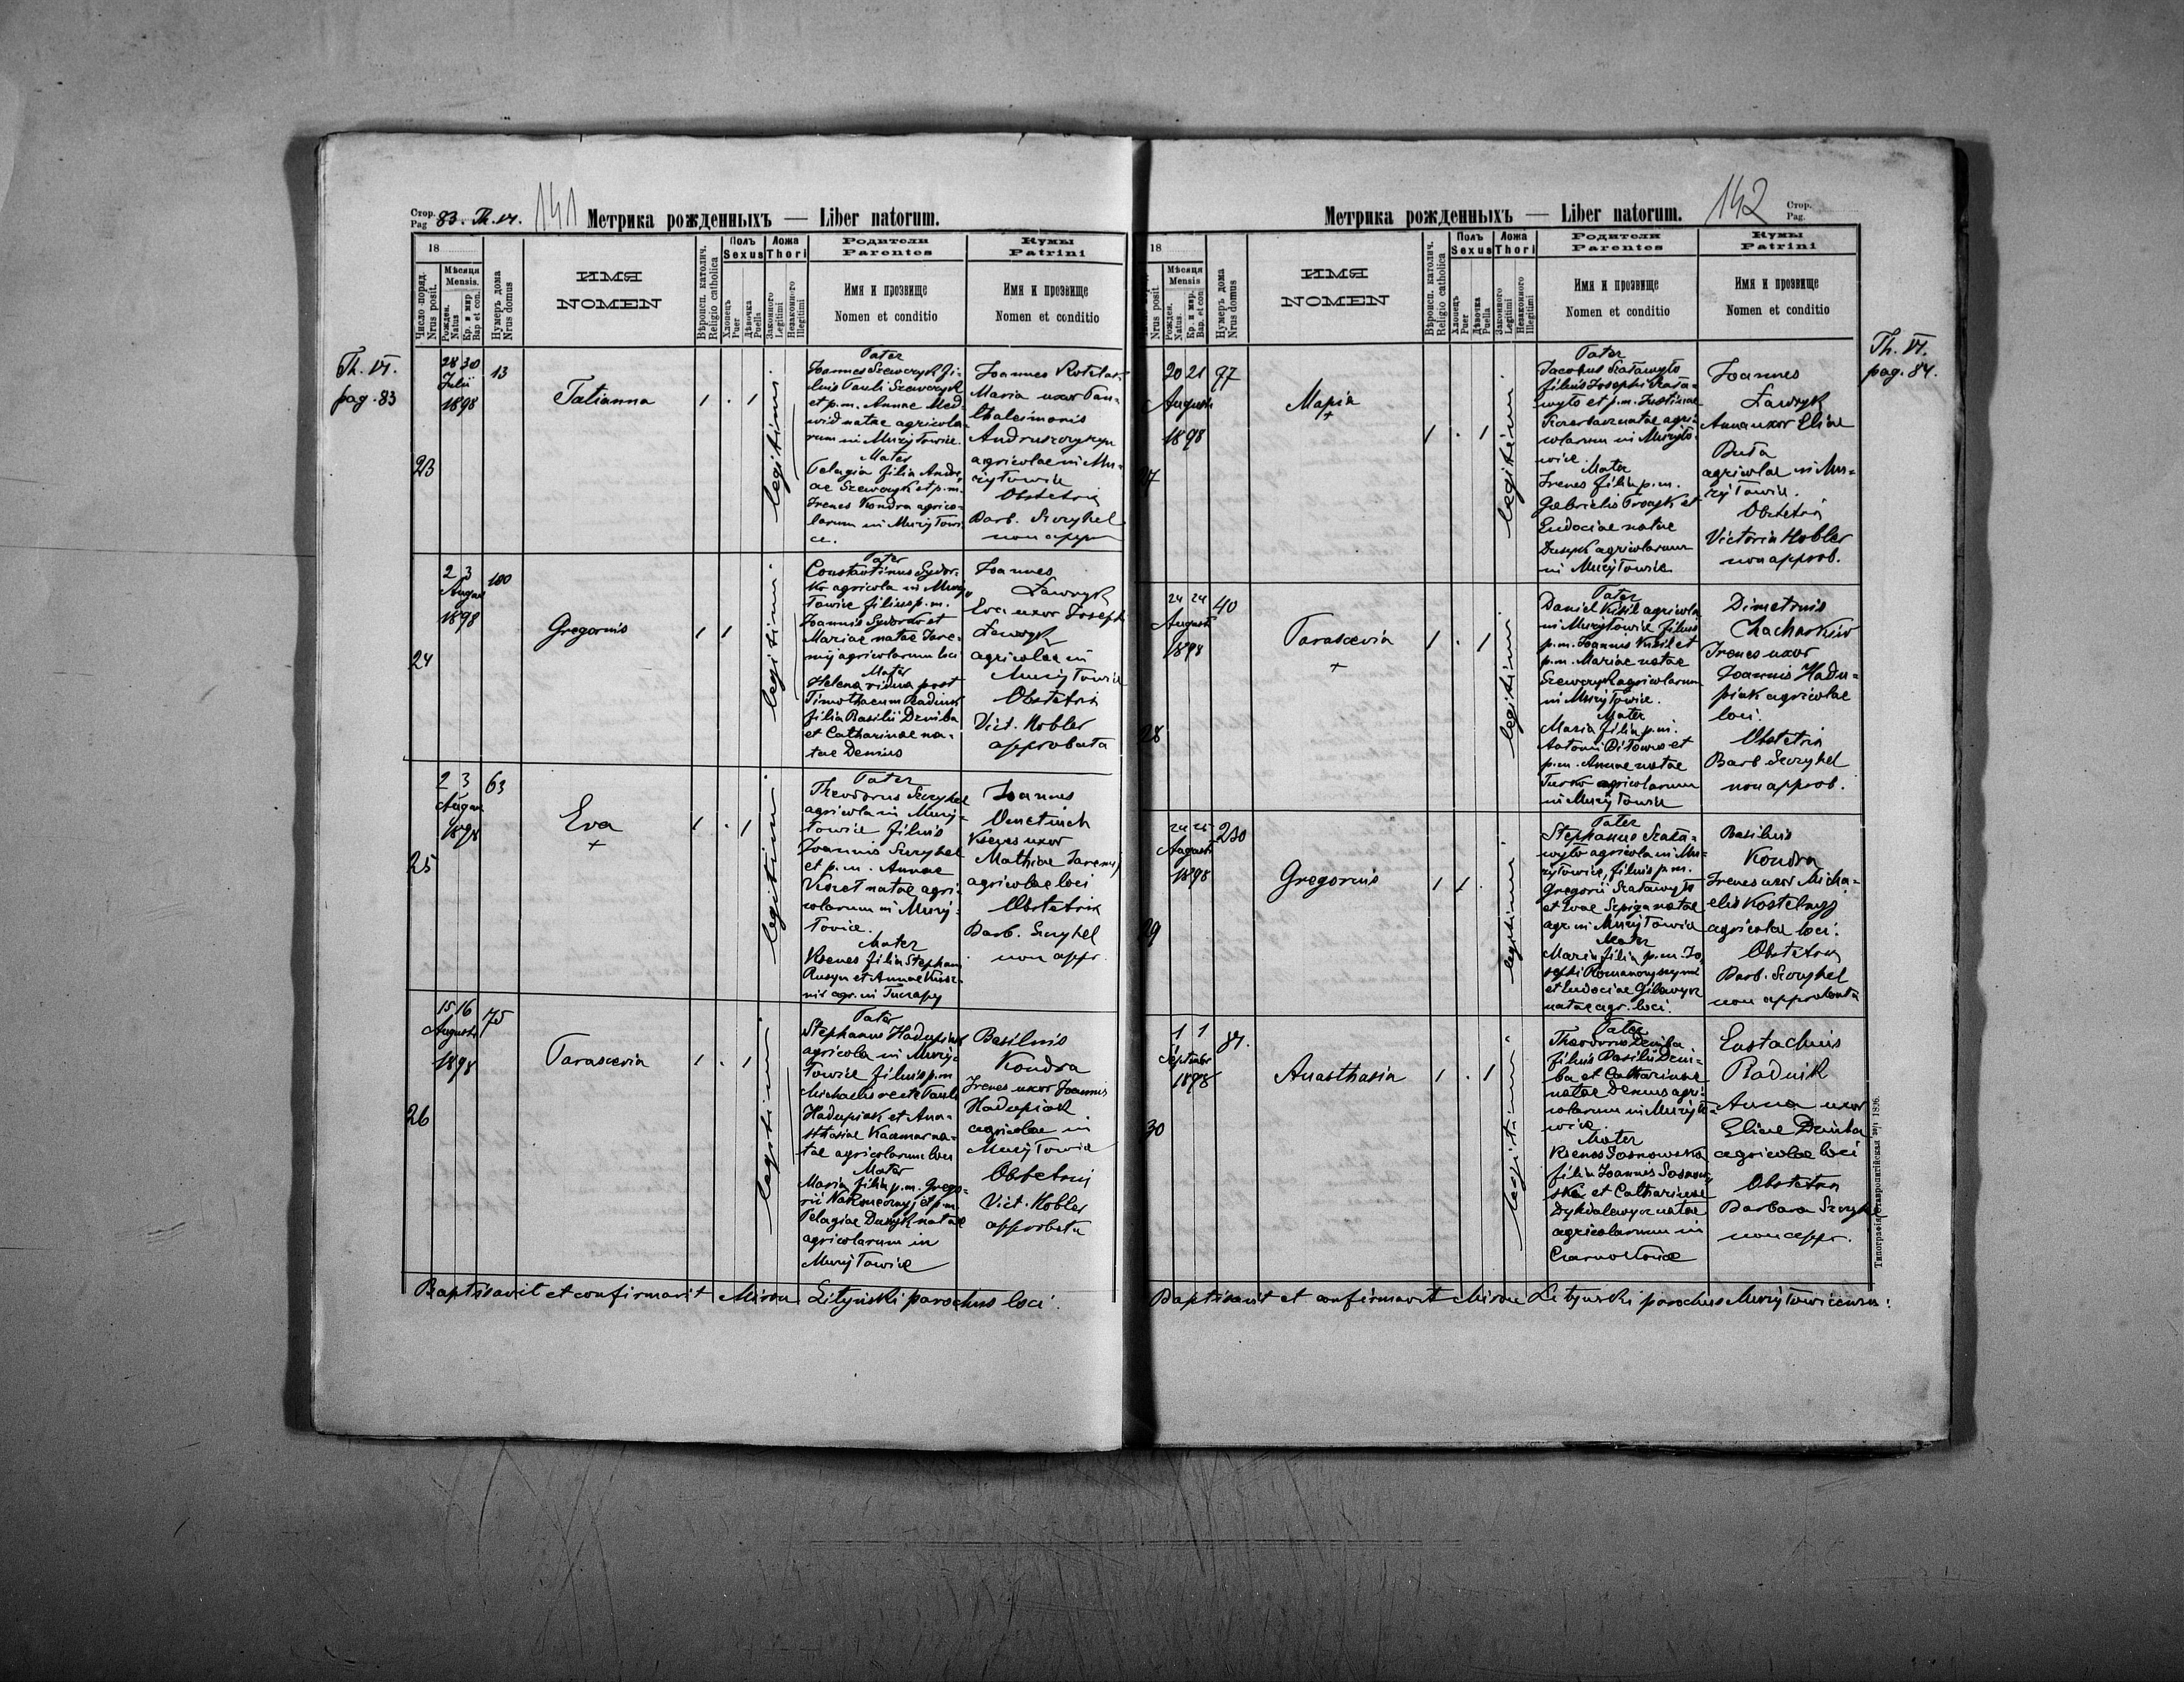 Стор. Pag 83. Th. VI.
141
Метрика рожденныхъ — Liber natorum.
18
Число поряд. Nrus posit.
Мѣсяця Mensis.
Рожден. Natus
Кр. и мѵр. Bap et con.
Нумеръ дома Nrus domus
ИМЯ
NOMEN
Вѣроисп. католич. Religio catholica
Полъ Sexus
Хлопецъ Puer
Дѣвочка Puella
Ложа Thori
Законного Legitimi
Незаконного Illegitimi
Родители
Parentes
Имя и прозвище
Nomen et conditio
Кумы
Patrini
Имя и прозвище
Nomen et conditio
Th. VI.
pag. 83
23
28 30
Julii
1898
13
Tatianna
1 . 1
legitimi.
Pater
Joannes Szewczyk fi-
lius Pauli Szewczyk
et p.m. Annae Med-
wid natae agricola-
rum in Mużyłowice.
Mater
Pelagia filia Andre-
ae Szewczyk et p.m.
Irenes Kondra agrico-
larum in Mużyłowi-
ce.
Joannes
Maria uxor Pan-
thaleimonis
agricolae in Mu-
żyłowice
Obstetrix
Barb. Szczyhel
non appr
24
2 3
August
1898
100
Gregorius
1 1
legitimi.
Pater
Constantinus Sydor-
ko agricola in Muży-
łowice filius p.m.
Joannis Sydorko et
Mariae natae Jare-
mij agricolarum loci
Mater
Helena vidua post
Timothaeum Radnik
filia Basilii Demba
et Catharinae na-
tae Demus
Joannes
Ławryk
Eva uxor Joseph
Ławryk
agricolae in
Mużyłowice
Obstetrix
Vict. Kobler
approbata
25
2 3
August
1898
63
Eva
+
1 . 1
legitimi.
Pater
Theodorus Szczyhel
agricola in Muży-
łowice filius
Joannis Szczyhel
et p.m. Annae
natae agri-
colarum in Muży-
łowice.
Mater
Ksenes filia Stephani
Rusyn et Annae
agr. in Tuczapy
Joannes
Ksenes uxor
Mathiae Jaremij
agricolae loci
Obstetrix
Barb. Szczyhel
non appr.
26
15 16
Augusti
1898
75
Parascevia
1 . 1
legitimi.
Pater
Stephanus Hadupiak
agricola in Muży-
łowice filius p.m
Michaelis recte Pauli
Hadupiak et Ana-
sthasiae Kaczmar na-
tae agricolarum loci
Mater
Maria filia p.m. Grego-
rii Nakonecznyj et p.m.
Pelagiae natae
agricolarum in
Mużyłowice
Basilius
Kondra
Irenes uxor Joannis
Hadupiak
agricolae in
Mużyłowice
Obstetrix
Vict. Kobler
approbata
Baptisavit et confirmavit Miron Lityński parochus loci.
Метрика рожденныхъ — Liber natorum.
142
Стор. Pag.
18
Nrus posit.
Мѣсяця Mensis.
Рожден. Natus.
Кр. и мѵр. Bap. et con
Нумеръ дома Nrus domus
ИМЯ
NOMEN
Вѣроисп. католич. Religio catholica
Полъ Sexus
Хлопецъ Puer
Дѣвочка Puella
Ложа Thori
Законного Legitimi
Незаконного Illegitimi
Родители
Parentes
Имя и прозвище
Nomen et conditio
Кумы
Patrini
Имя и прозвище
Nomen et conditio
Th. VI.
pag. 84.
27
20 21
Augusti
1898
97
Марія
+
1 . 1
legitimi.
Pater
Jacobus Szaławyło
filius Josephi Szała-
wyło et p.m. Justinae
natae agri-
colarum in Mużyło-
wice.
Mater
Irenes filia p.m.
Gabrielis et
Eudociae natae
agricolarum
in Mużyłowice
Joannes
Ławryk
Anna uxor Eliae
Buła
agricolae in Mu-
żyłowice.
Obstetrix
Victoria Kobler
non approb.
28
24 24
Augusti
1898
40
Parascevia
+
1 . 1
legitimi.
Pater
Daniel Kisil agricola
in Mużyłowice filius
p.m. Joannis Kisil et
p.m. Mariae natae
Szewczyk agricolarum
in Mużyłowice.
Mater
Maria filia p.m.
Antonii et
p.m. Annae natae
Turko agricolarum
in Mużyłowice
Dimetrius
Zacharkiw
Irenes uxor
Joannis Hadu-
piak agricolae
loci.
Obstetrix
Barb Szczyhel
non approb.
29
24 25
Augusti
1898
230
Gregorius
1 1 .
legitimi.
Pater
Stephanus Szała-
wyło agricola in Mu-
żyłowice, filius p.m.
Gregorii Szaławyło
et Evae natae
agr. in Mużyłowice
Mater
Maria filia p.m. Jo-
sephi
et Eudociae
natae agr. loci.
Basilius
Kondra
Irenes uxor Micha-
elis Kostelnyj
agricolae loci.
Obstetrix
Barb. Szczyhel
non approbata
30
1 1
Septembr
1898
84.
Anasthasia
1 . 1
legitimi.
Pater
Theodorus Demba
filius Basilii Dem-
ba et Catharinae
natae Demus agri-
colarum in Mużyło-
wice.
Mater
Ksenes Sosnowska
filia Joannis Sosnow-
ski et Catharinae
natae
agricolarum in
Eustachius
Radnik
Anna uxor
Eliae Demba
agricolae loci
Obstetrix
Barbara Szczyhel
non appr.
Baptisavit et confirmavit Miron Lityński parochus Mużyłowicensis.
Типографія Ставропигійская 1896.